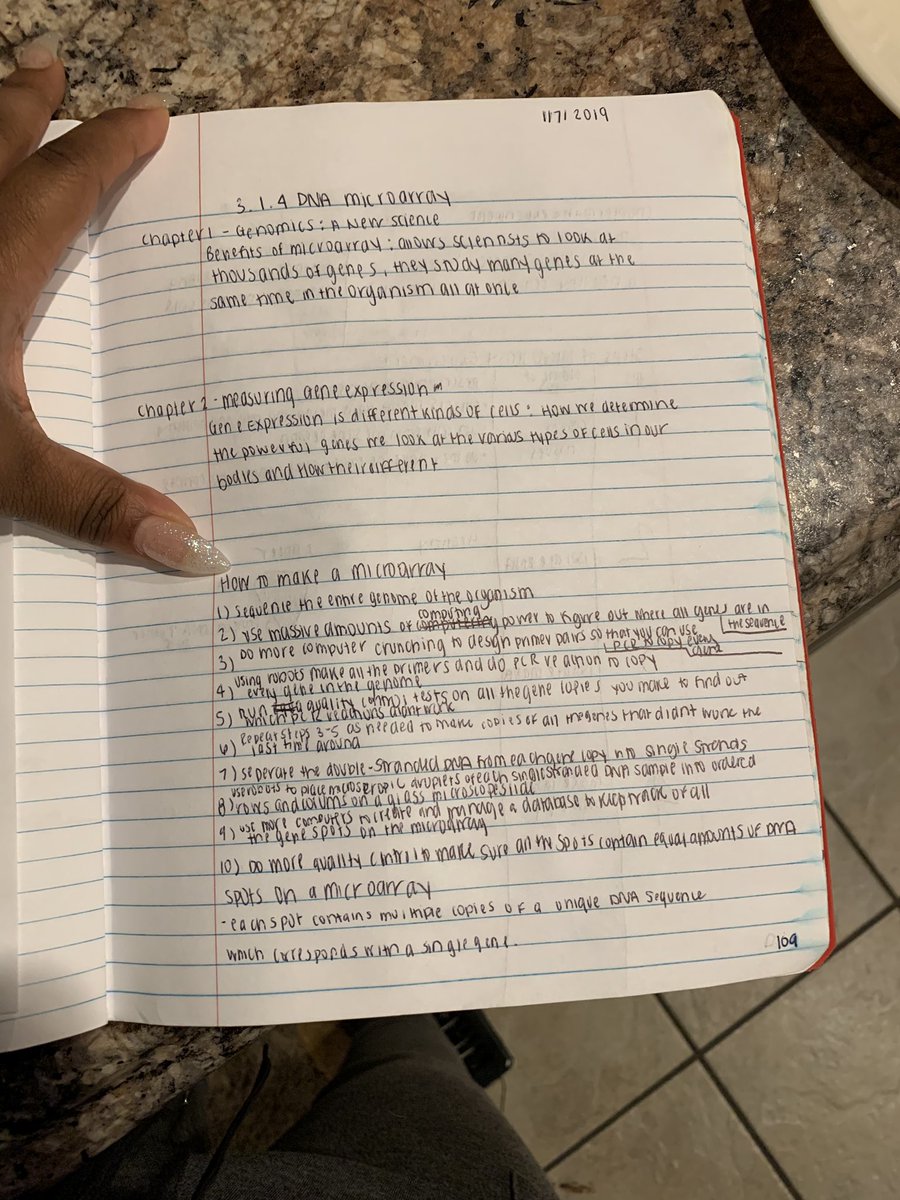 11/7/2019
3.1.4 DNA microarray
Chapter 1 - Genomics: A New science
Benefits of microarray: allows scientists to look at
thousands of genes, they study many genes at the
same time in the organism all at once
Chapter 2 - measuring gene expression
Gene Expression is different kinds of cells: How we determine
the powerful genes we look at the various types of cells in our
bodies and how their different
How to make a microarray
1) sequence the entire genome of the organism
computing
2) use massive amounts of power to figure out where all genes are in
the sequence
3) Do more computer crunching to design primer pairs so that you can use
PCR to copy every
gene
4) using robots make all the primers and do PCR reaction to copy
every gene in the genome
5) Run quality control tests on all the gene copies you make to find out
which PCR reactions didnt work
6) repeat steps 3-5 as needed to make copies of all the genes that didnt work the
last time around
7) seperate the double-stranded DNA from each gene copy into single strands
8) use robots to place microscropic droplets of each single stranded DNA sample into ordered
rows and colums on a glass microscope slide
9) use more computers to create and manage a database to keep track of all
the gene spots on the microarray
10) Do more quality control to make sure all the spots contain equal amounts of DNA
spots on a microarray
- each spot contains multiple copies of a unique DNA sequence
which corresponds with a single gene.
109